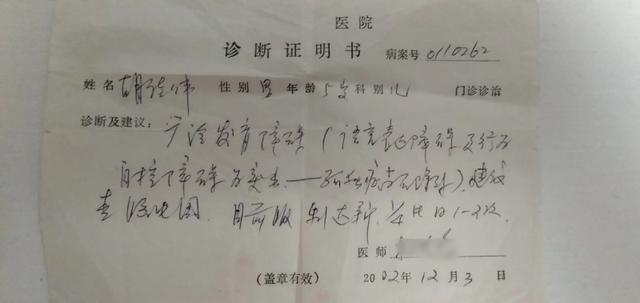 医院
诊断证明书 病案号 0110262
姓名 胡 伟 性别 男 年龄 5岁 科别 儿 门诊诊治
诊断及建议: 广泛发育障碍(语言表达障碍及行为
自控障碍为突出——孤独症古不除外)建议
查脑电图. 目前服利达新, 片 日1-2次.
医师
(盖章有效) 2002年12月3日